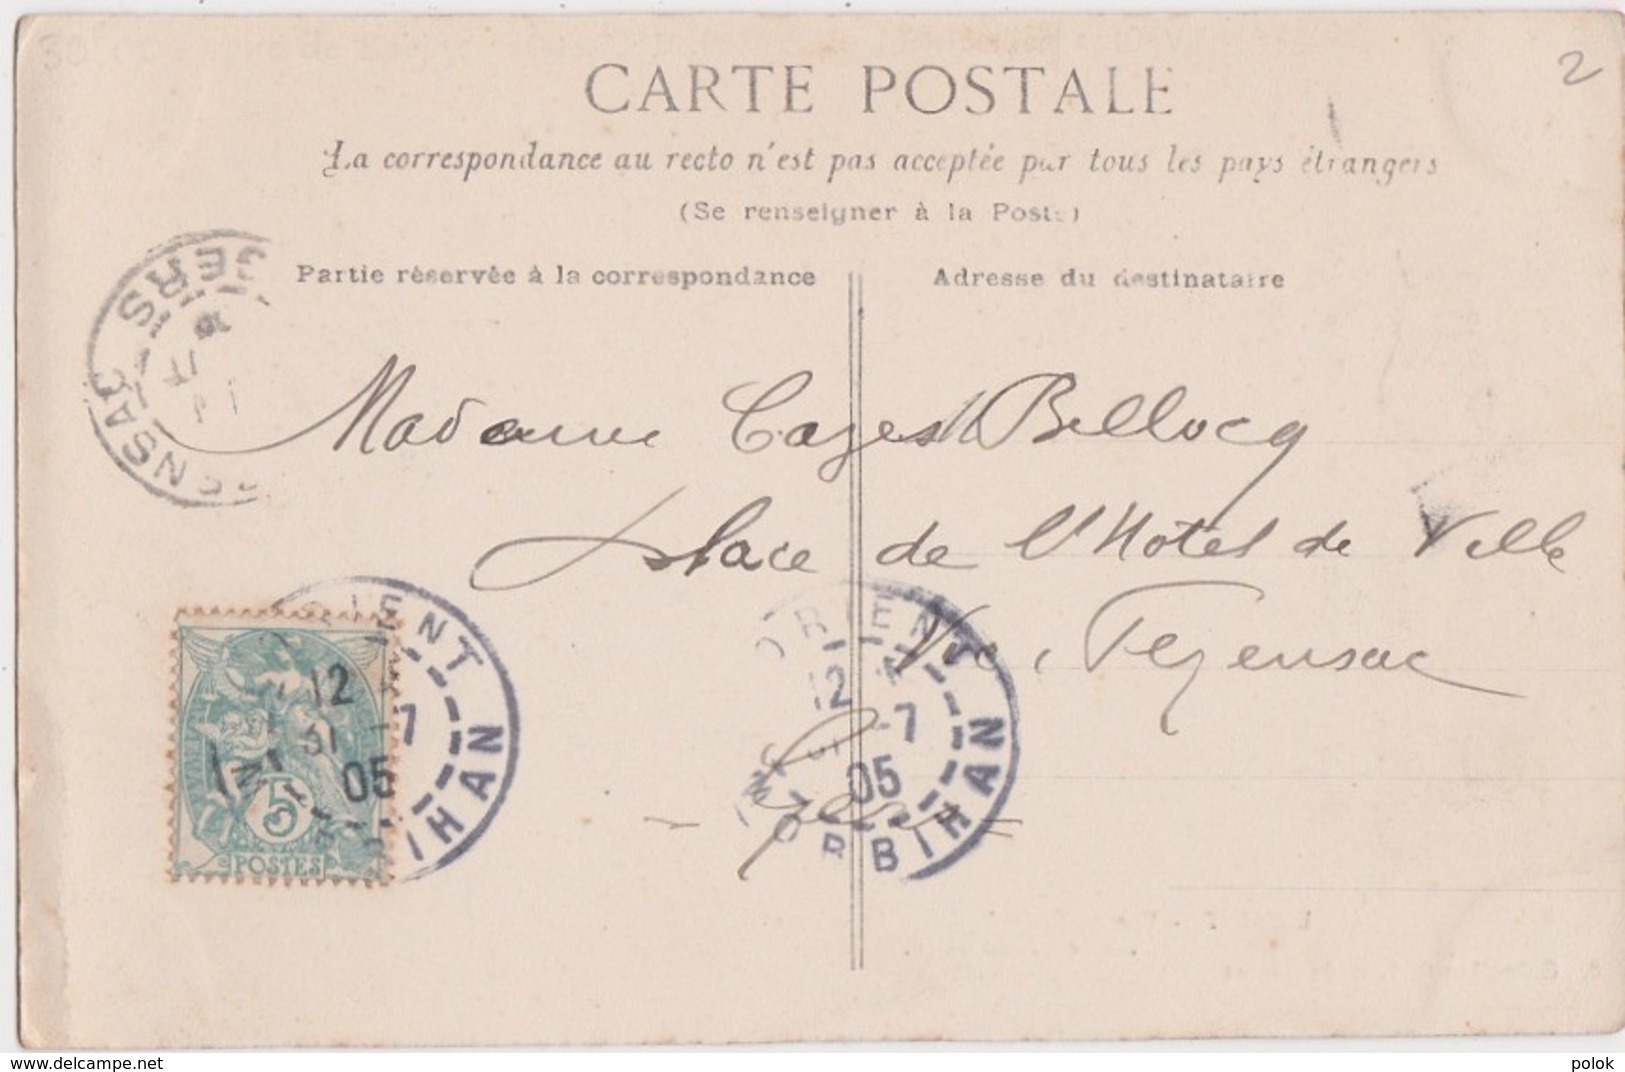 2
CARTE POSTALE
La correspondance au recto n'est pas acceptée par tous les pays étrangers
(Se renseigner à la Poste)
Partie réservée à la correspondance
Adresse du destinataire
GERS
ENSAC
Madame Cazes Bellocq
place de l'Hôtel de Ville
Vic Fezensac
Gers
ORIENT
12
31 -7
05
MORBIHAN
5
POSTES
ORIENT
12
-7
05
MORBIHAN
delcampe.net
polok